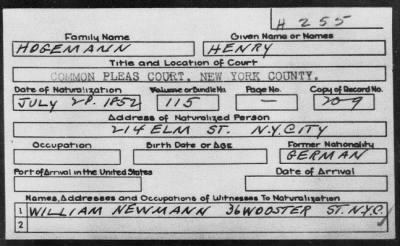 H 255
Family Name Given Name or Names
HOGEMANN HENRY
Title and Location of Court
COMMON PLEAS COURT, NEW YORK COUNTY.
Date of Naturalization Volume or Bundle No. Page No. Copy of Record No.
JULY 28. 1852 115 — 209
Address of Naturalized Person
214 ELM ST. N.Y.CITY
Occupation Birth Date or Age Former Nationality
GERMAN
Port of Arrival in the United States Date of Arrival
Names, Addresses and Occupations of Witnesses To Naturalization
1 WILLIAM NEWMANN 36 WOOSTER ST. N.Y.C.
2